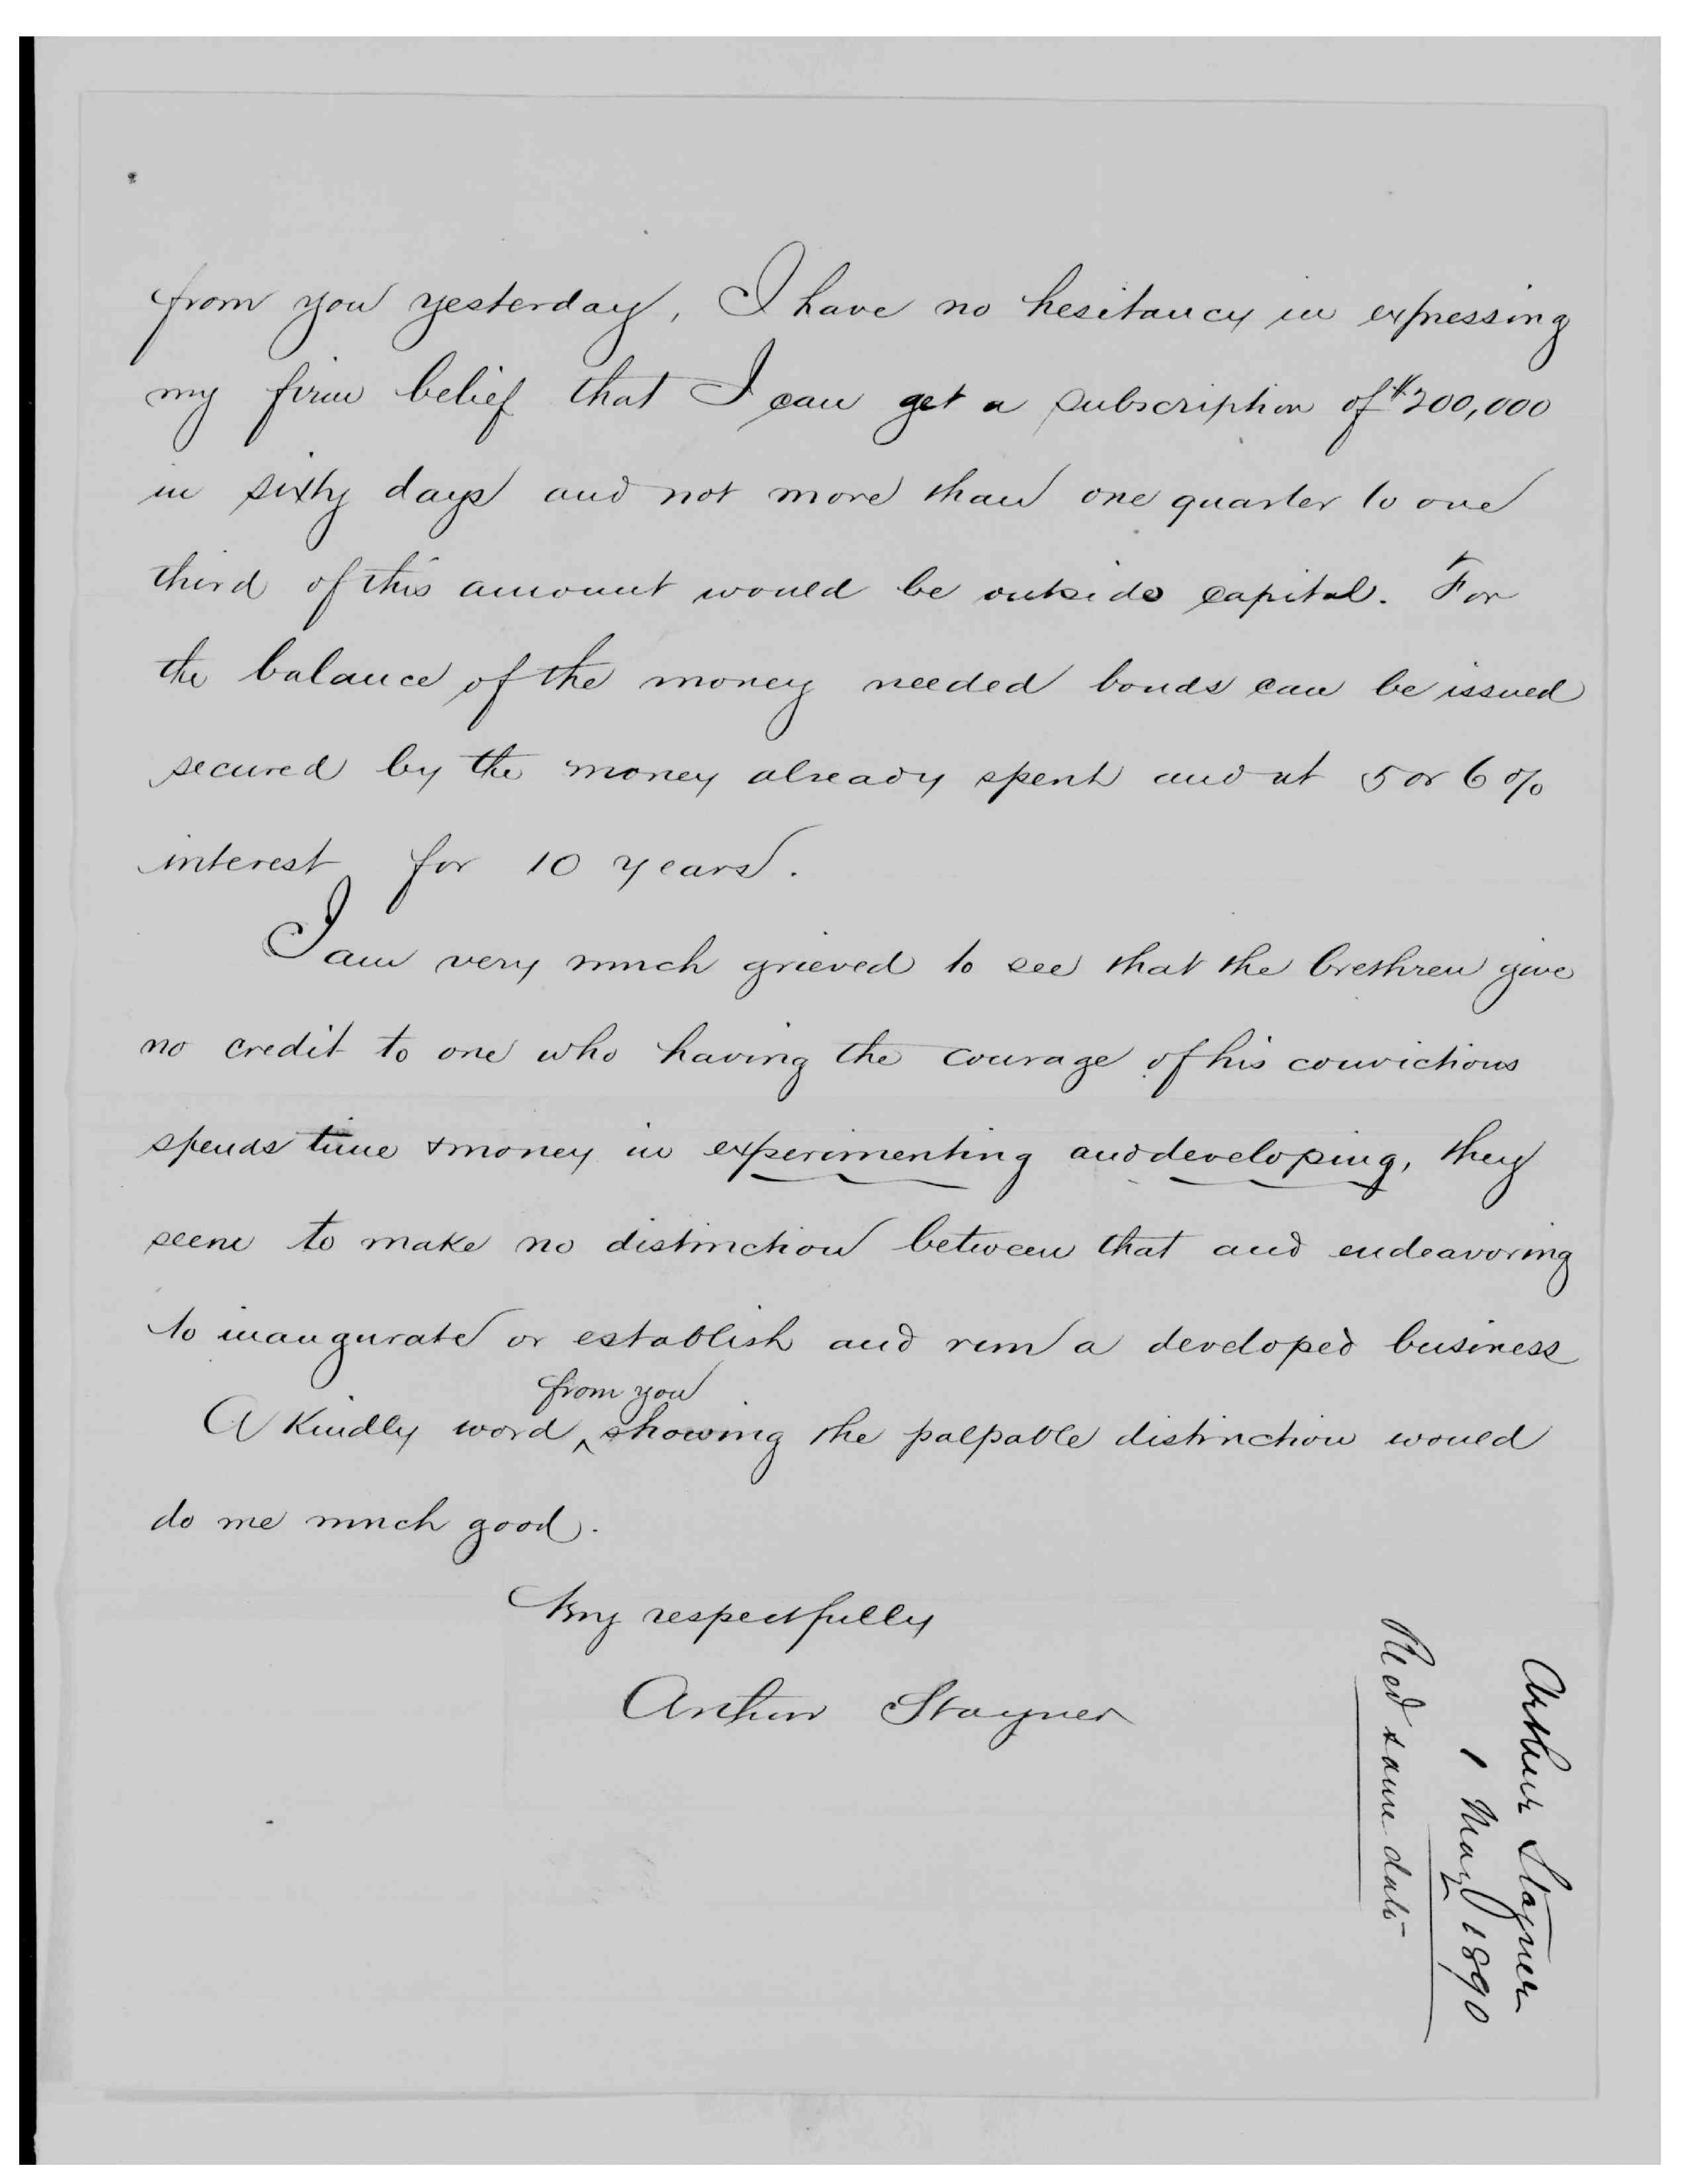 from you yesterday, I have no hesitancy in expressing
my firm belief that I can get a subscription of $200,000
in sixty days and not more than one quarter to one
third of this amount would be outside capital. For
the balance of the money needed bonds can be issued
secured by the money already spent and at 5 or 6 %
interest for 10 years.
I am very much grieved to see that the brethren give
no credit to one who having the courage of his convictions
spends time & money in experimenting and developing, they
seem to make no distinction between that and endeavoring
to inaugurate or establish and run a developed business
from you
A kindly word ^ showing the palpable distinction would
do me much good.
Very respectfully
Arthur Stayner
Arthur Stayner
1 May 1890
Rec'd same date